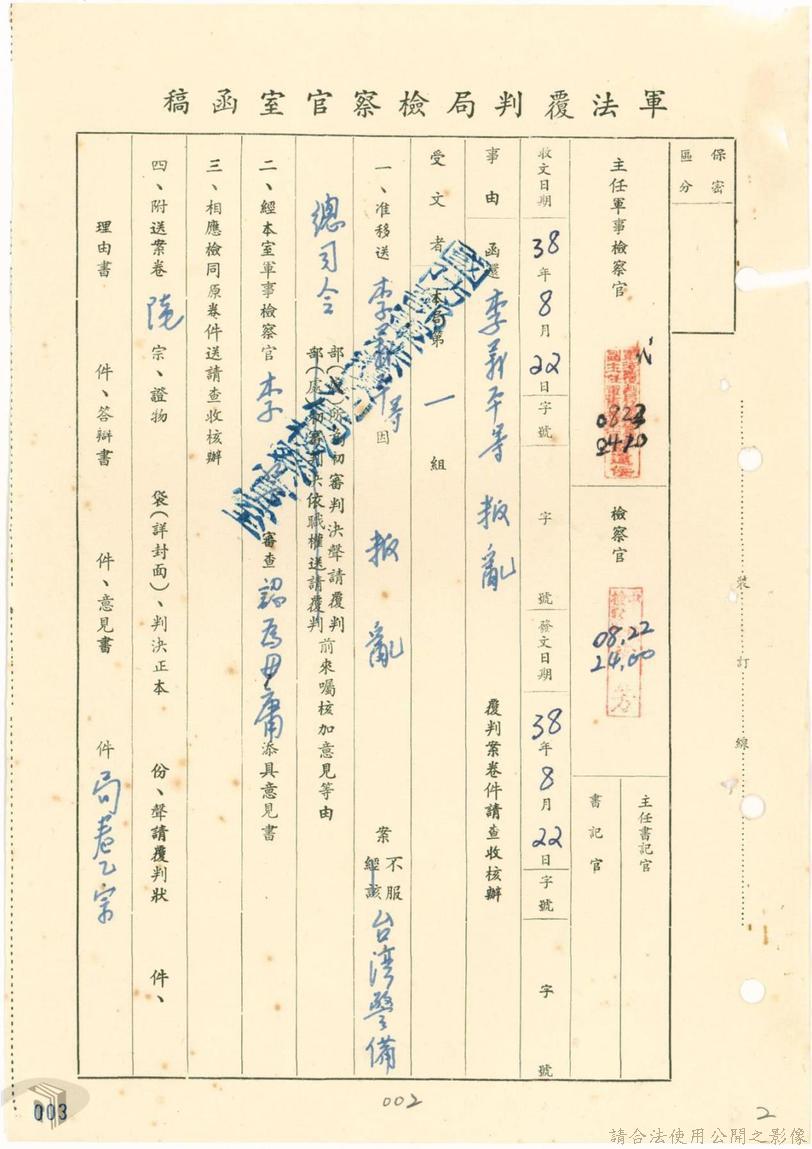 軍法覆判局檢察官室函稿
保密區分
主任軍事檢察官
0823
2410
檢察官
08.22
24.00
主任書記官
書記官
收文日期 38年8月22日 字號 字 號 發文日期 38年8月22日 字號 字 號
事由 函還 李義平等 叛亂 覆判案卷件請查收核辦
受文者 本局第一組
一、准移送 李義平等 因 叛亂 案 不服 經該 台湾警備
總司令 部(處)所為初審判決聲請覆判 部(處)初審判決依職權送請覆判 前來囑核加意見等由
二、經本室軍事檢察官 李 審查 認為毋庸 添具意見書
三、相應檢同原卷件送請查收核辦
四、附送案卷 陸 宗、證物 袋(詳封面)、判決正本 份、聲請覆判狀 件、
理由書 件、答辯書 件、意見書 件 局卷乙宗
裝
訂
線
003
002
2
請合法使用公開之影像